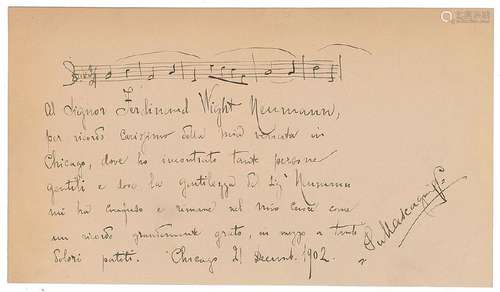 Al Signor Ferdinand Wight Neumann,
per ricordo carissimo della mia venuta in
Chicago, dove ho incontrato tante persone
gentili e dove la gentilezza del Sigr Neumann
mi ha confuso e rimane nel mio cuore come
un ricordo grandemente grato, in mezzo a tanti
dolori patiti. Chicago 21 Decemb. 1902.
P. Mascagni